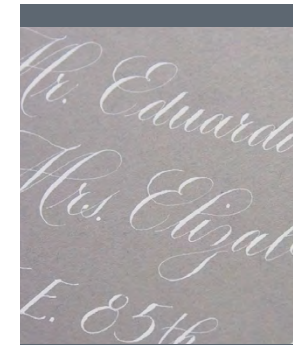 Mr. Eduardo
Mrs. Elizab
E. 85th